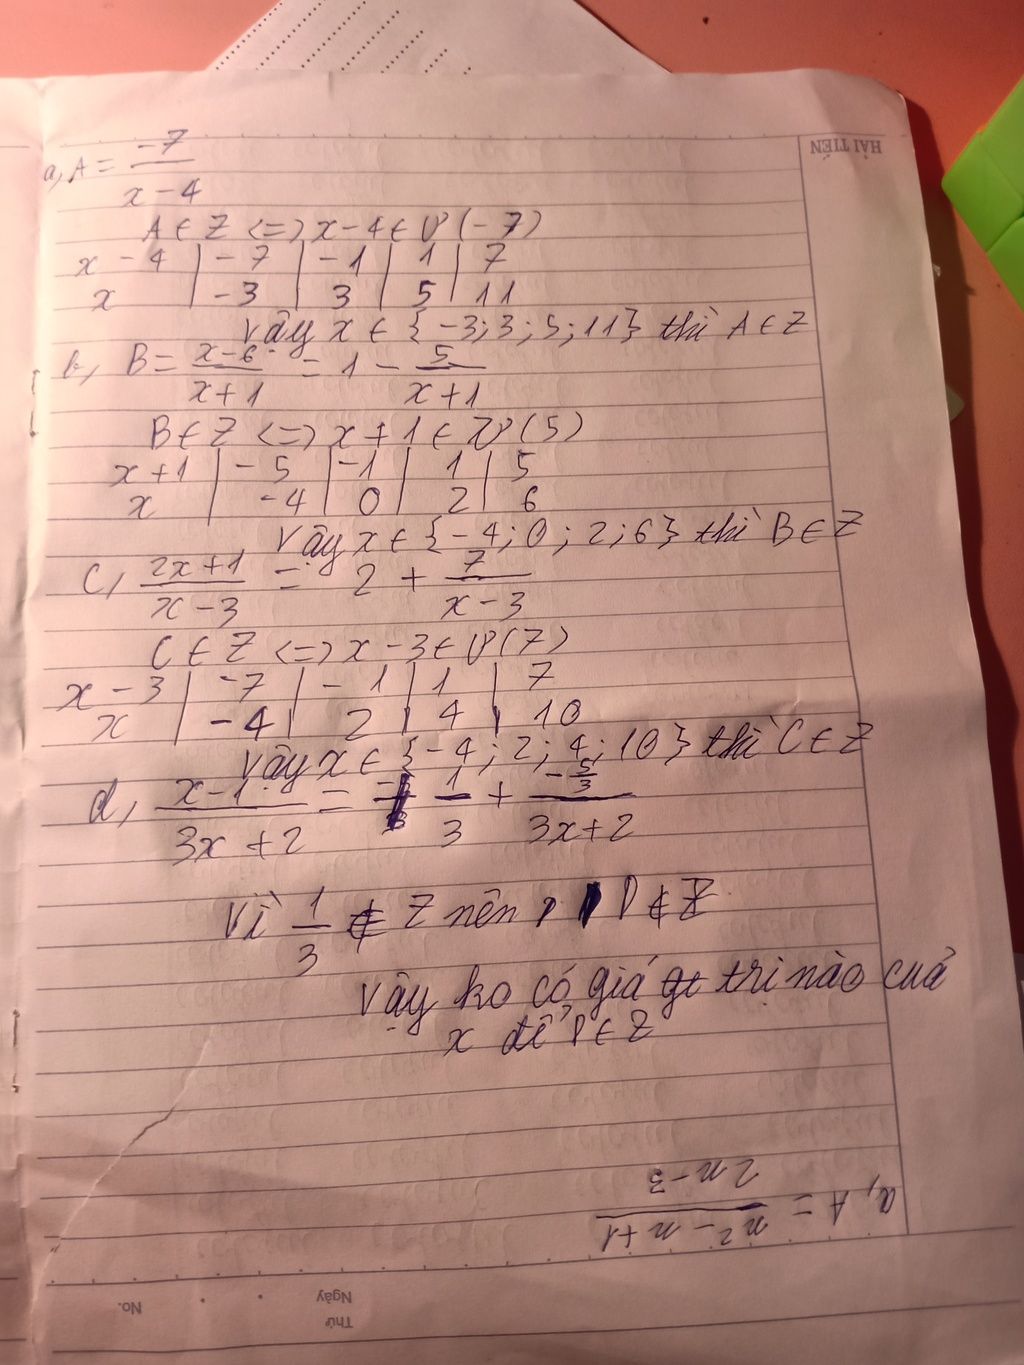 HẢI TIẾN
a, A = -7 / x - 4
A ∈ Z <=> x-4 ∈ Ư (-7)
x - 4 | -7 | -1 | 1 | 7
x | -3 | 3 | 5 | 11
Vậy x ∈ {-3; 3; 5; 11} thì A ∈ Z
b, B = x-6 / x+1 = 1 - 5 / x+1
B ∈ Z <=> x + 1 ∈ Ư (5)
x+1 | -5 | -1 | 1 | 5
x | -4 | 0 | 2 | 6
Vậy x ∈ {-4; 0; 2; 6} thì B ∈ Z
C, 2x+1 / x-3 = 2 + 7 / x-3
C ∈ Z <=> x - 3 ∈ Ư (7)
x - 3 | -7 | -1 | 1 | 7
x | -4 | 2 | 4 | 10
Vậy x ∈ {-4; 2; 4; 10} thì C ∈ Z
d, x-1 / 3x+2 = 1/3 + -5/3 / 3x+2
Vì 1/3 ∉ Z nên D ∉ Z
Vậy ko có giá trị nào của
x để D ∈ Z
a, A = n² - n + 1 / 2n - 3
Thứ
Ngày
No.